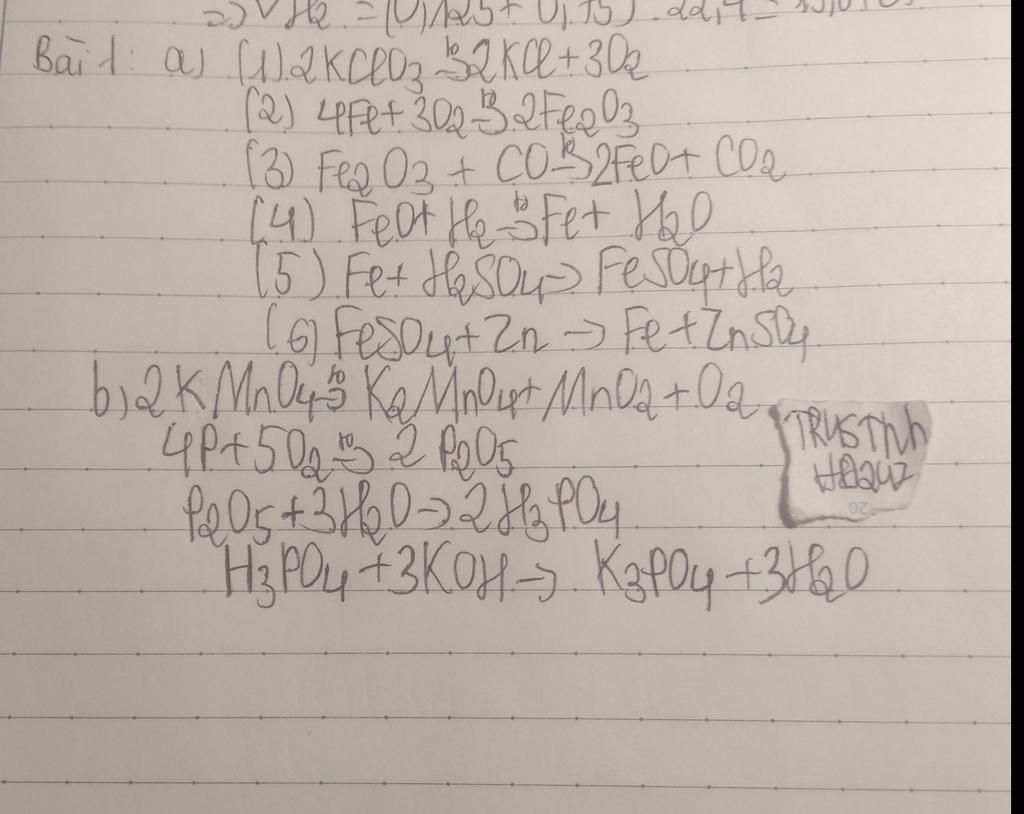 => VH2 = (0,125+ 0,15) . 22,4 =
Bài 1: a) (1) 2KClO3 t°→ 2KCl + 3O2
(2) 4Fe + 3O2 t°→ 2Fe2O3
(3) Fe2O3 + CO t°→ 2FeO + CO2
(4) FeO + H2 t°→ Fe + H2O
(5) Fe + H2SO4 → FeSO4 + H2
(6) FeSO4 + Zn → Fe + ZnSO4
b) 2KMnO4 t°→ K2MnO4 + MnO2 + O2
4P + 5O2 t°→ 2P2O5
TRUSTnh
P2O5 + 3H2O → 2H3PO4
20
H3PO4 + 3KOH → K3PO4 + 3H2O